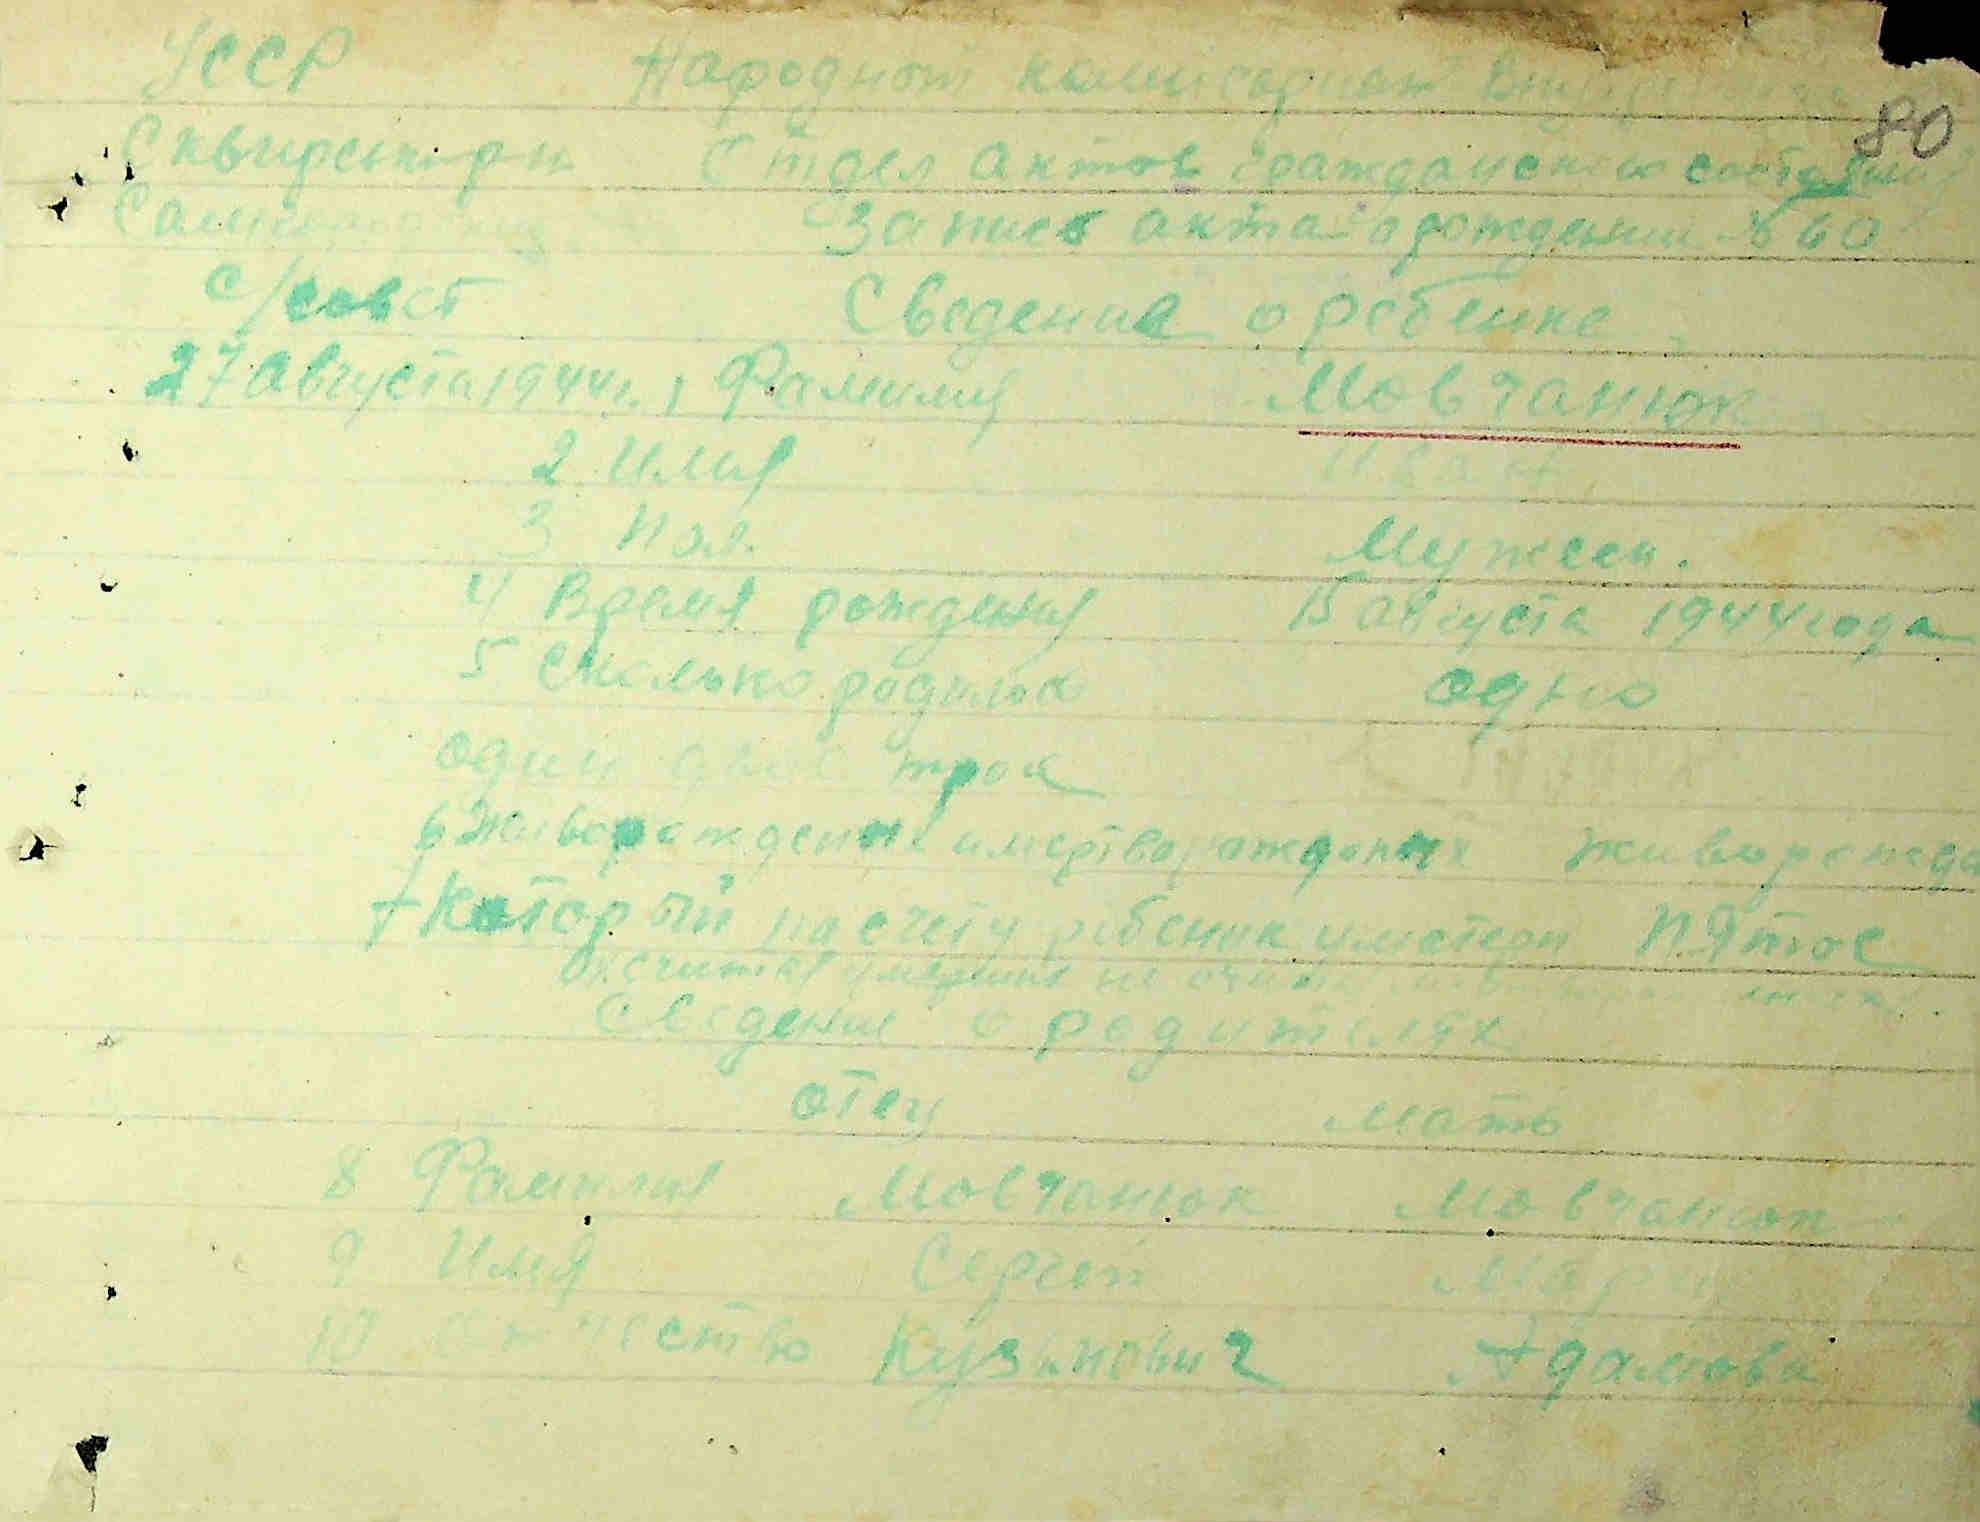 УССР Народной комисариат Внутрен
80
Сквирский р-н Отдел актов гражданского состояния
Самгородски Запись акта о рождении № 60
с/совет Сведения о ребенке
27 августа 1944 г. 1 Фамилия Мовчанюк
2 Имя Иван
3 Пол. Мужеск.
4 Время рождения 15 августа 1944 года
5 Сколько родилось одно
один двое трое
6 Живорожденых и мертворожденых живорожде
7 Который по счету ребенок у матери пятое
считая умерших не считая
Сведение о родителях
отец Мать
8 Фамилия Мовчанюк Мовчанюк
9 Имя Сергей Мари
10 Отчество Кузьмович Адамовн